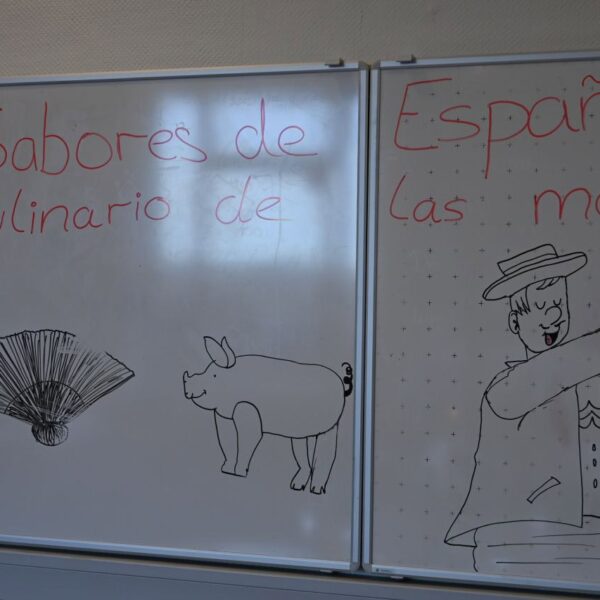 Sabores de Españ
ulinario de las m